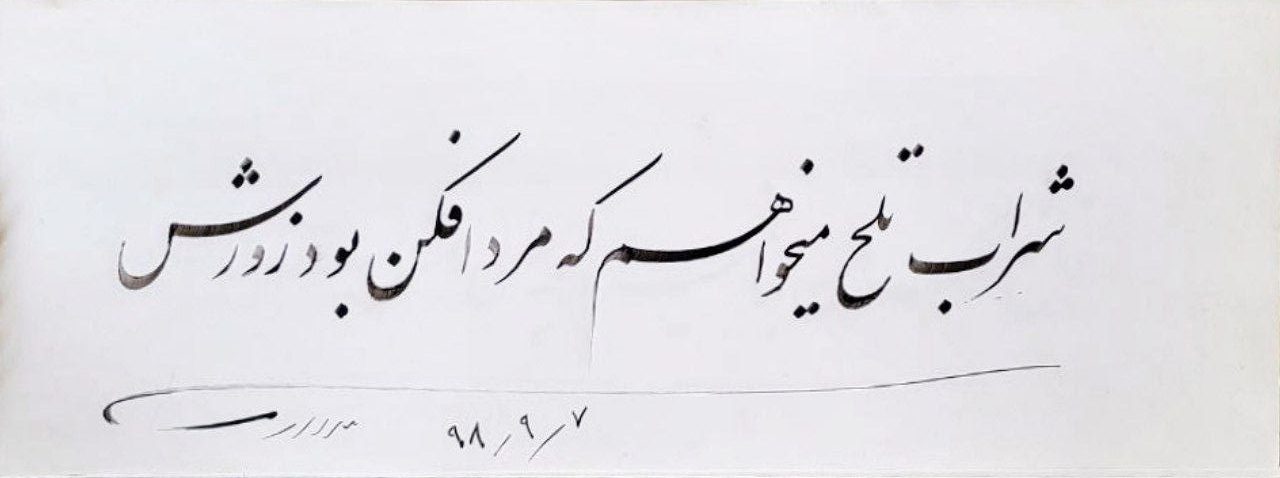 شراب تلخ میخواهم که مرد افکن بود زورش
۹۸/۹/۷